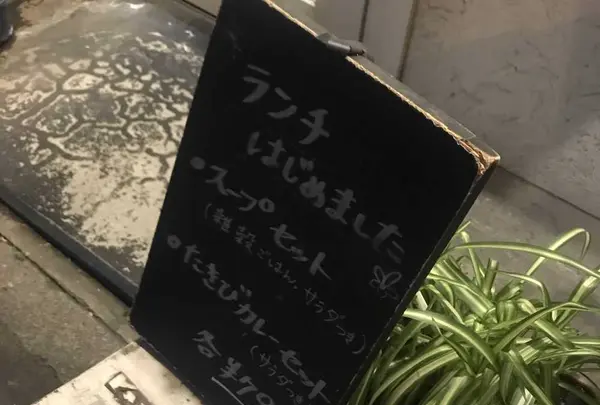 ランチ
はじめました
・スープセット
(雑穀ごはん、サラダつき)
・たきびカレーセット
(サラダつき
各¥70